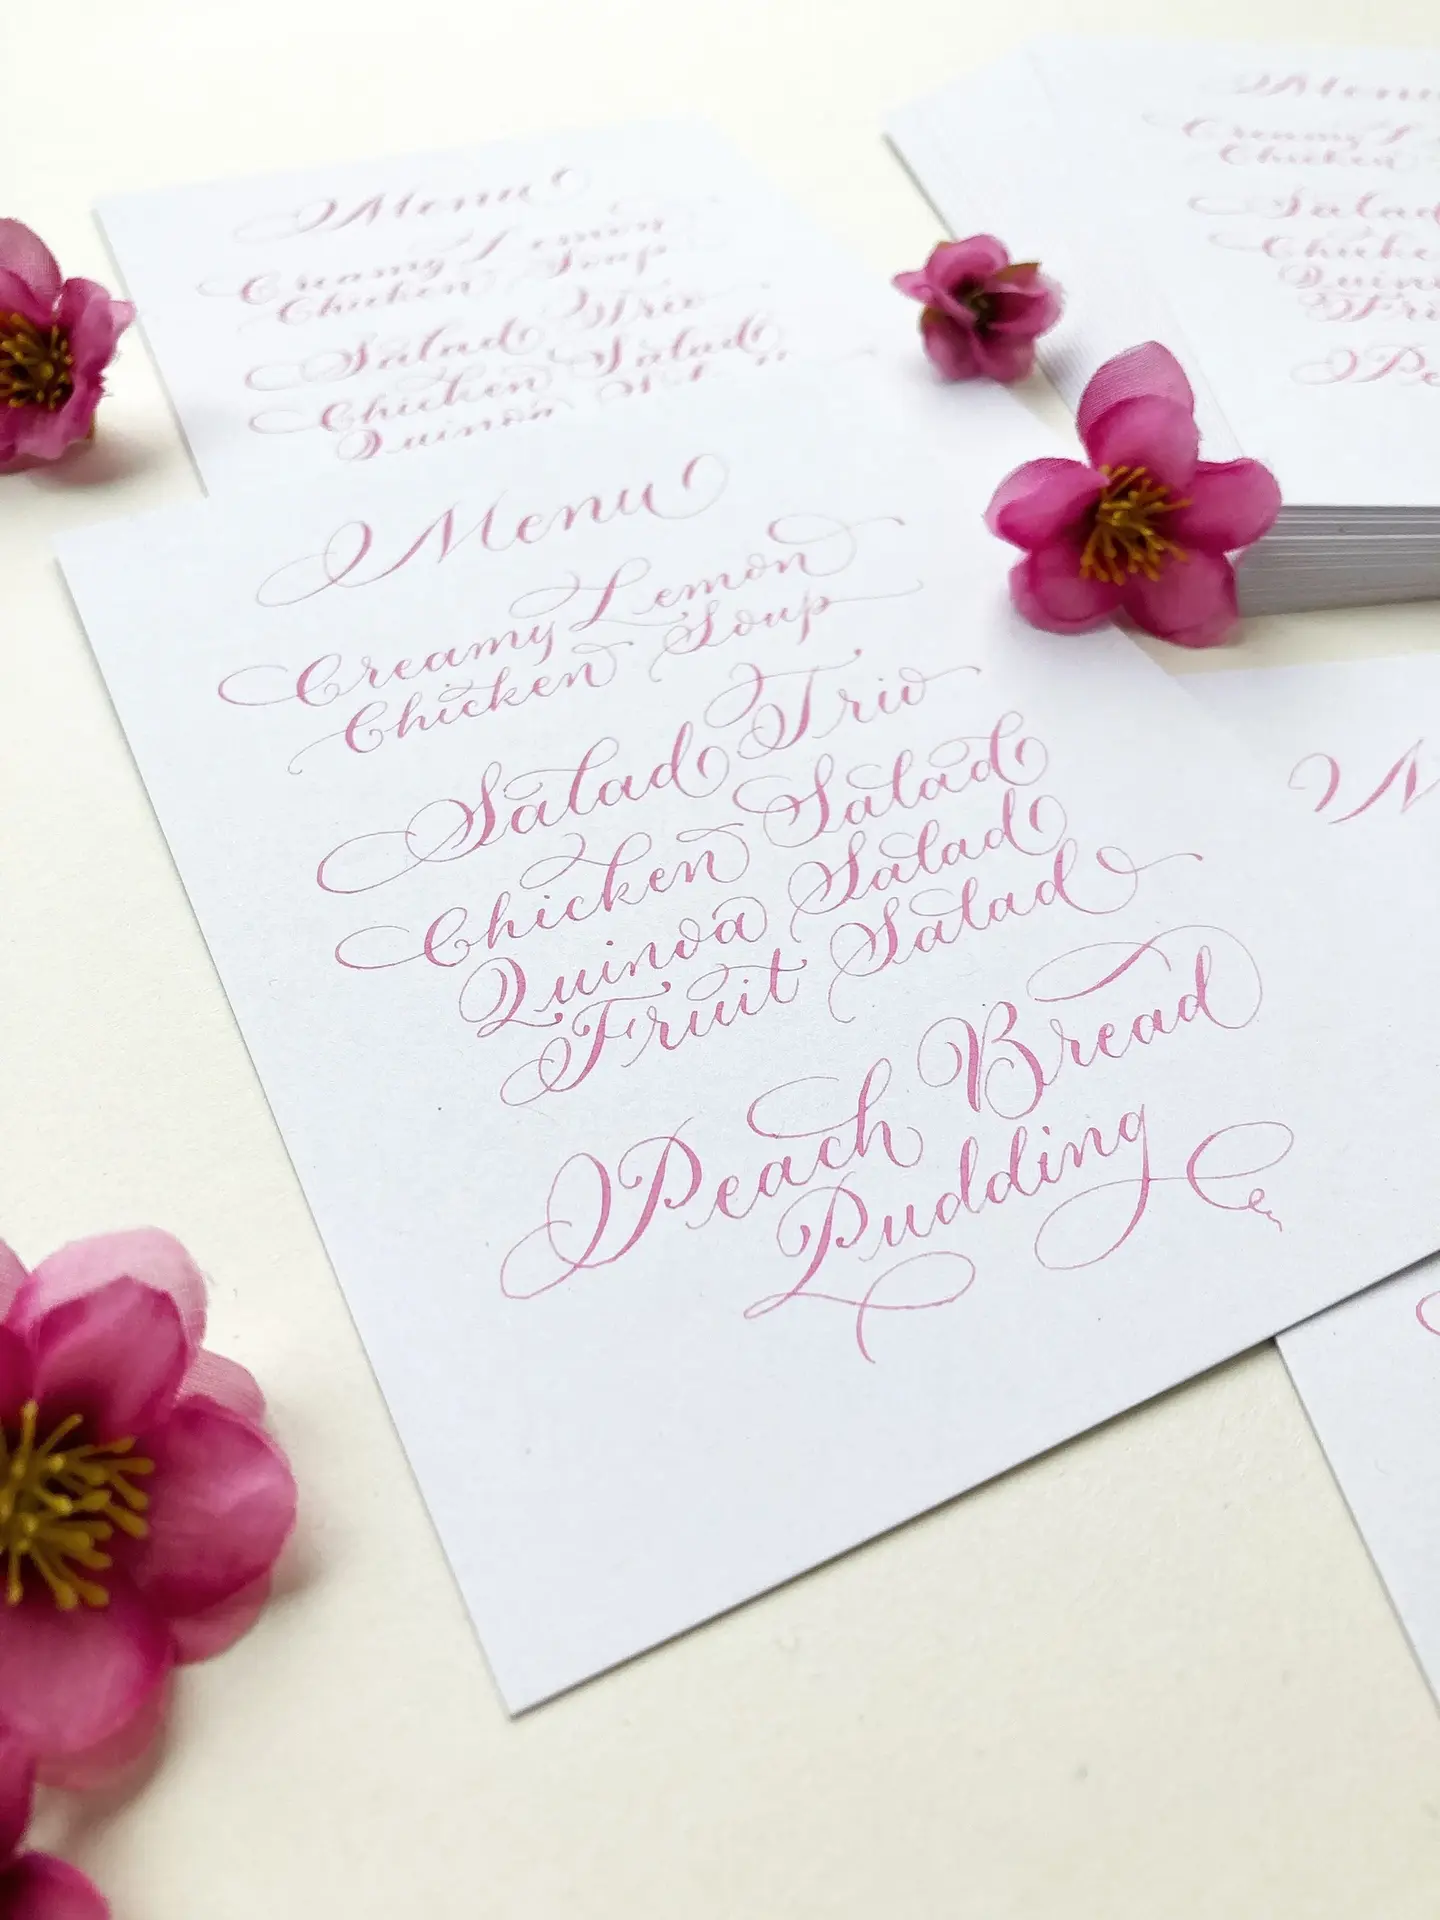 Menu
Creamy Lemon
Chicken Soup
Salad Trio
Chicken Salad
Quinoa
Menu
Creamy
Chicken
Salad
Menu
Creamy Lemon
Chicken Soup
Salad Trio
Chicken Salad
Quinoa Salad
Fruit Salad
Peach Bread
Pudding